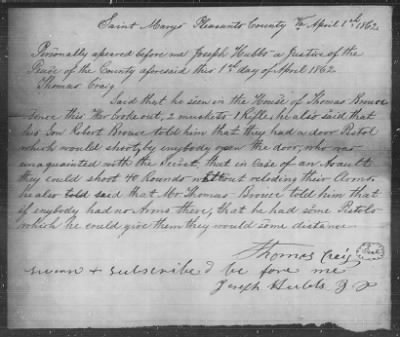 Saint Marys Pleasants County Va April 1st 1862.
Personally apeared before me Joseph Hubbs a Justice of the
Peace of the County aforesaid this 1st day of April 1862.
Thomas Craig
Said that he seen in the House of Thomas Browse
Since this War broke out, 2 muskets 1 Rifle, he also said that
his Son Robert Browse told him that they had a door Pistol
which would shoot, by enybody open the door, who was
unaquainted with the Secret, that in case of an Asault
they could shoot 40 Rounds without reloding their Arms
he also told said that Mr Thomas Browse told him that
if enybody had no Arms there, that he had some Pistols
which he could give them they would some distance
Thomas Craig
sworn & subscribed be fore me
Joseph Hubbs J P